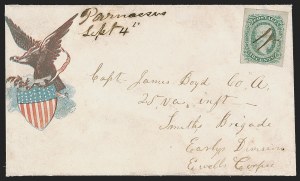 Parnassus
Sept 4"
Capt. James Boyd Co. A.
25 va. inft
Smiths Brigade
Earlys Division
Ewells Corps